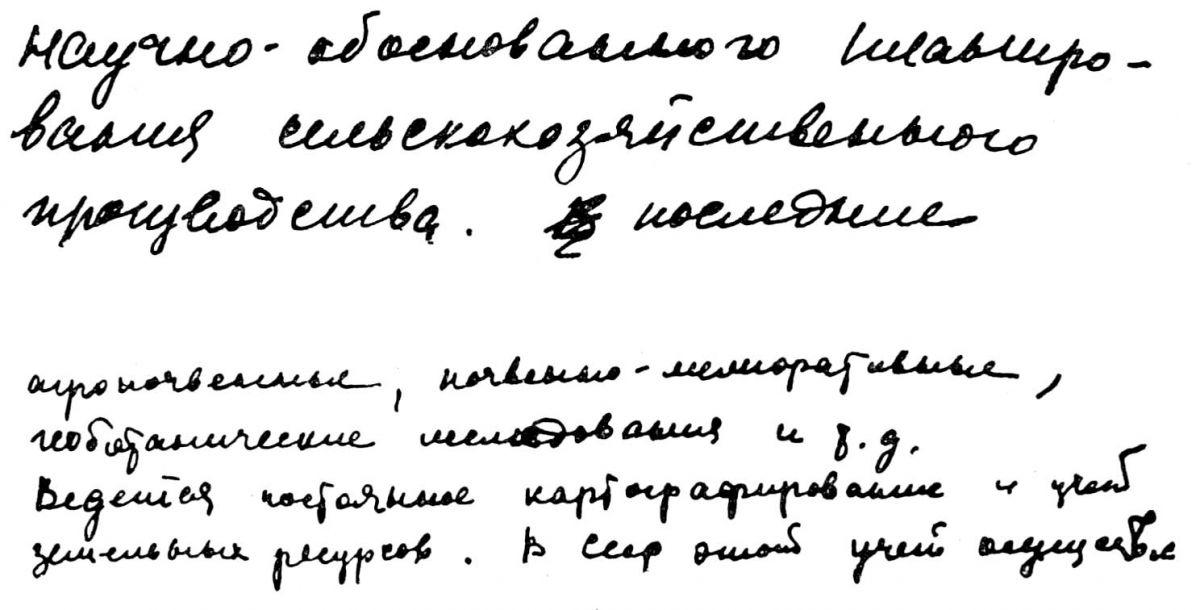 научно-обоснованного планиро-
вания сельскохозяйственного
производства. последние
агропочвенные, почвенно-мелиоративные,
геоботанические исследования и т.д.
Ведется постоянное картографирование и учет
земельных ресурсов. В СССР этот учет осуществ